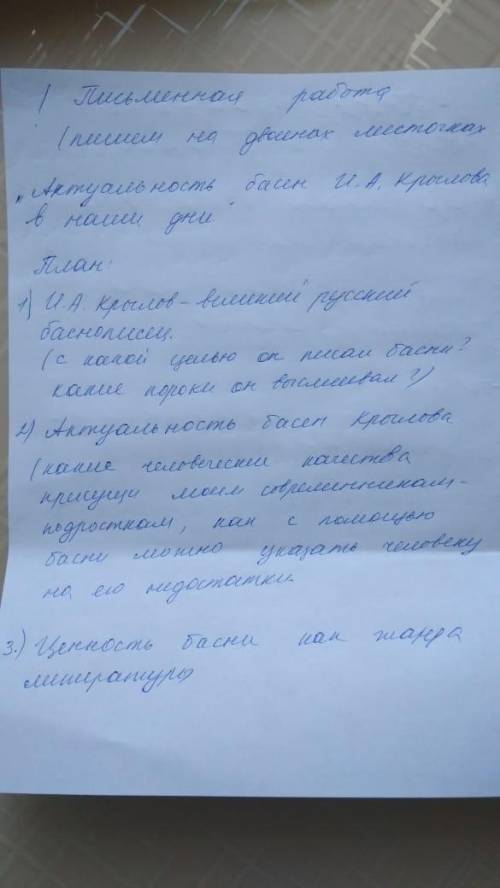 / Письменная работа
(пишем на двойных листочках
"Актуальность басен И.А. Крылова
в наши дни"
План:
1) И.А. Крылов - великий русский
баснописец.
(с какой целью он писал басни?
какие пороки он высмеивал?)
2) Актуальность басен Крылова
(какие человеческие качества
присущи моим современникам-
подросткам, как с помощью
басни можно указать человеку
на его недостатки.
3.) Ценность басни как жанра
литературы